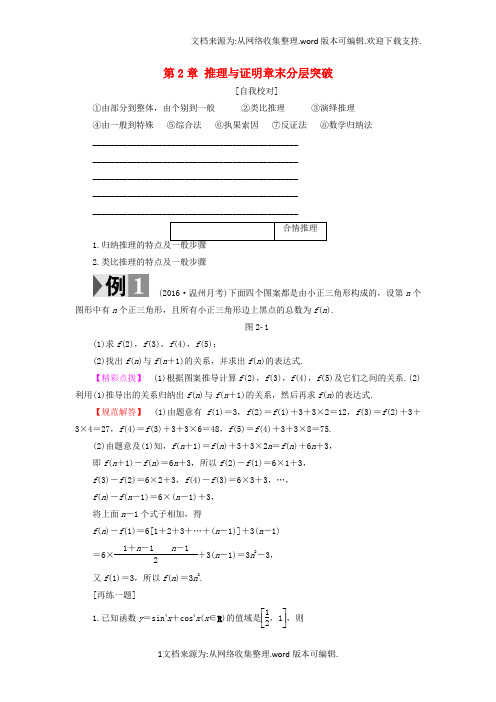 文档来源为:从网络收集整理.word版本可编辑.欢迎下载支持.
第2章 推理与证明章末分层突破
[自我校对]
①由部分到整体，由个别到一般 ②类比推理 ③演绎推理
④由一般到特殊 ⑤综合法 ⑥执果索因 ⑦反证法 ⑧数学归纳法
合情推理
1.归纳推理的特点及一般步骤
2.类比推理的特点及一般步骤
例1 (2016·温州月考)下面四个图案都是由小正三角形构成的，设第n个
图形中有n个正三角形，且所有小正三角形边上黑点的总数为f(n).
图2-1
(1)求f(2)，f(3)，f(4)，f(5)；
(2)找出f(n)与f(n＋1)的关系，并求出f(n)的表达式.
【精彩点拨】 (1)根据图案推导计算f(2)，f(3)，f(4)，f(5)及它们之间的关系.(2)
利用(1)推导出的关系归纳出f(n)与f(n＋1)的关系，然后再求f(n)的表达式.
【规范解答】 (1)由题意有f(1)＝3，f(2)＝f(1)＋3＋3×2＝12，f(3)＝f(2)＋3＋
3×4＝27，f(4)＝f(3)＋3＋3×6＝48，f(5)＝f(4)＋3＋3×8＝75.
(2)由题意及(1)知，f(n＋1)＝f(n)＋3＋3×2n＝f(n)＋6n＋3，
即f(n＋1)－f(n)＝6n＋3，所以f(2)－f(1)＝6×1＋3，
f(3)－f(2)＝6×2＋3，f(4)－f(3)＝6×3＋3，…，
f(n)－f(n－1)＝6×(n－1)＋3，
将上面n－1个式子相加，得
f(n)－f(1)＝6[1＋2＋3＋…＋(n－1)]＋3(n－1)
＝6×1＋n－1 n－1/2＋3(n－1)＝3n²－3，
又f(1)＝3，所以f(n)＝3n².
[再练一题]
1.已知函数y＝sin⁴x＋cos⁴x(x∈R)的值域是[1/2，1]，则
1文档来源为:从网络收集整理.word版本可编辑.